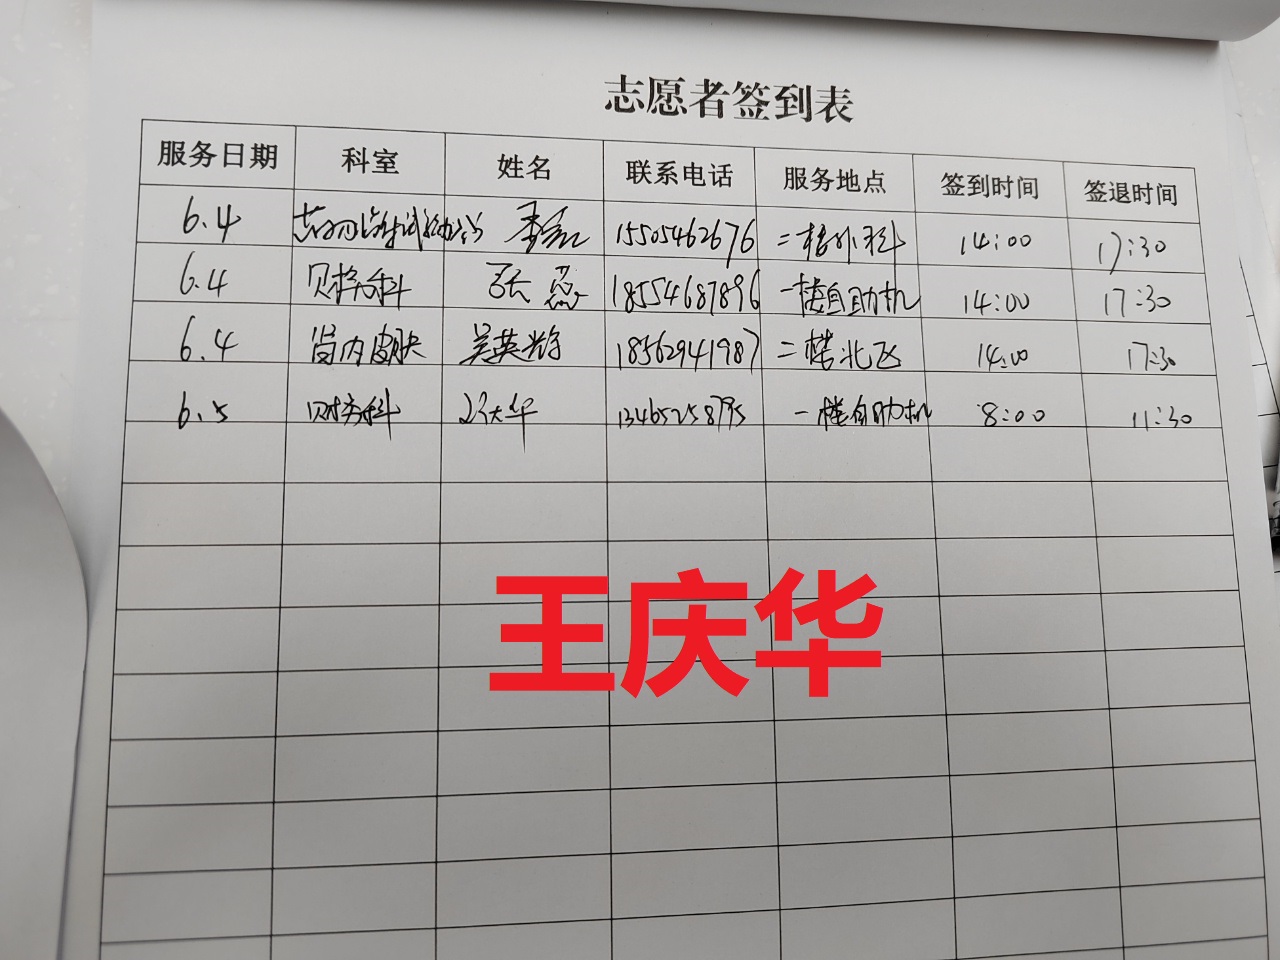 志愿者签到表
服务日期 科室 姓名 联系电话 服务地点 签到时间 签退时间
6.4 药物临床试验办公 15505462676 二楼外科 14:00 17:30
6.4 财务科 张蕊 18554687896 一楼自助机 14:00 17:30
6.4 肾内皮肤 吴英娇 18562941987 二楼北区 14:00 17:30
6.5 财务科 13465258795 一楼自助机 8:00 11:30
王庆华